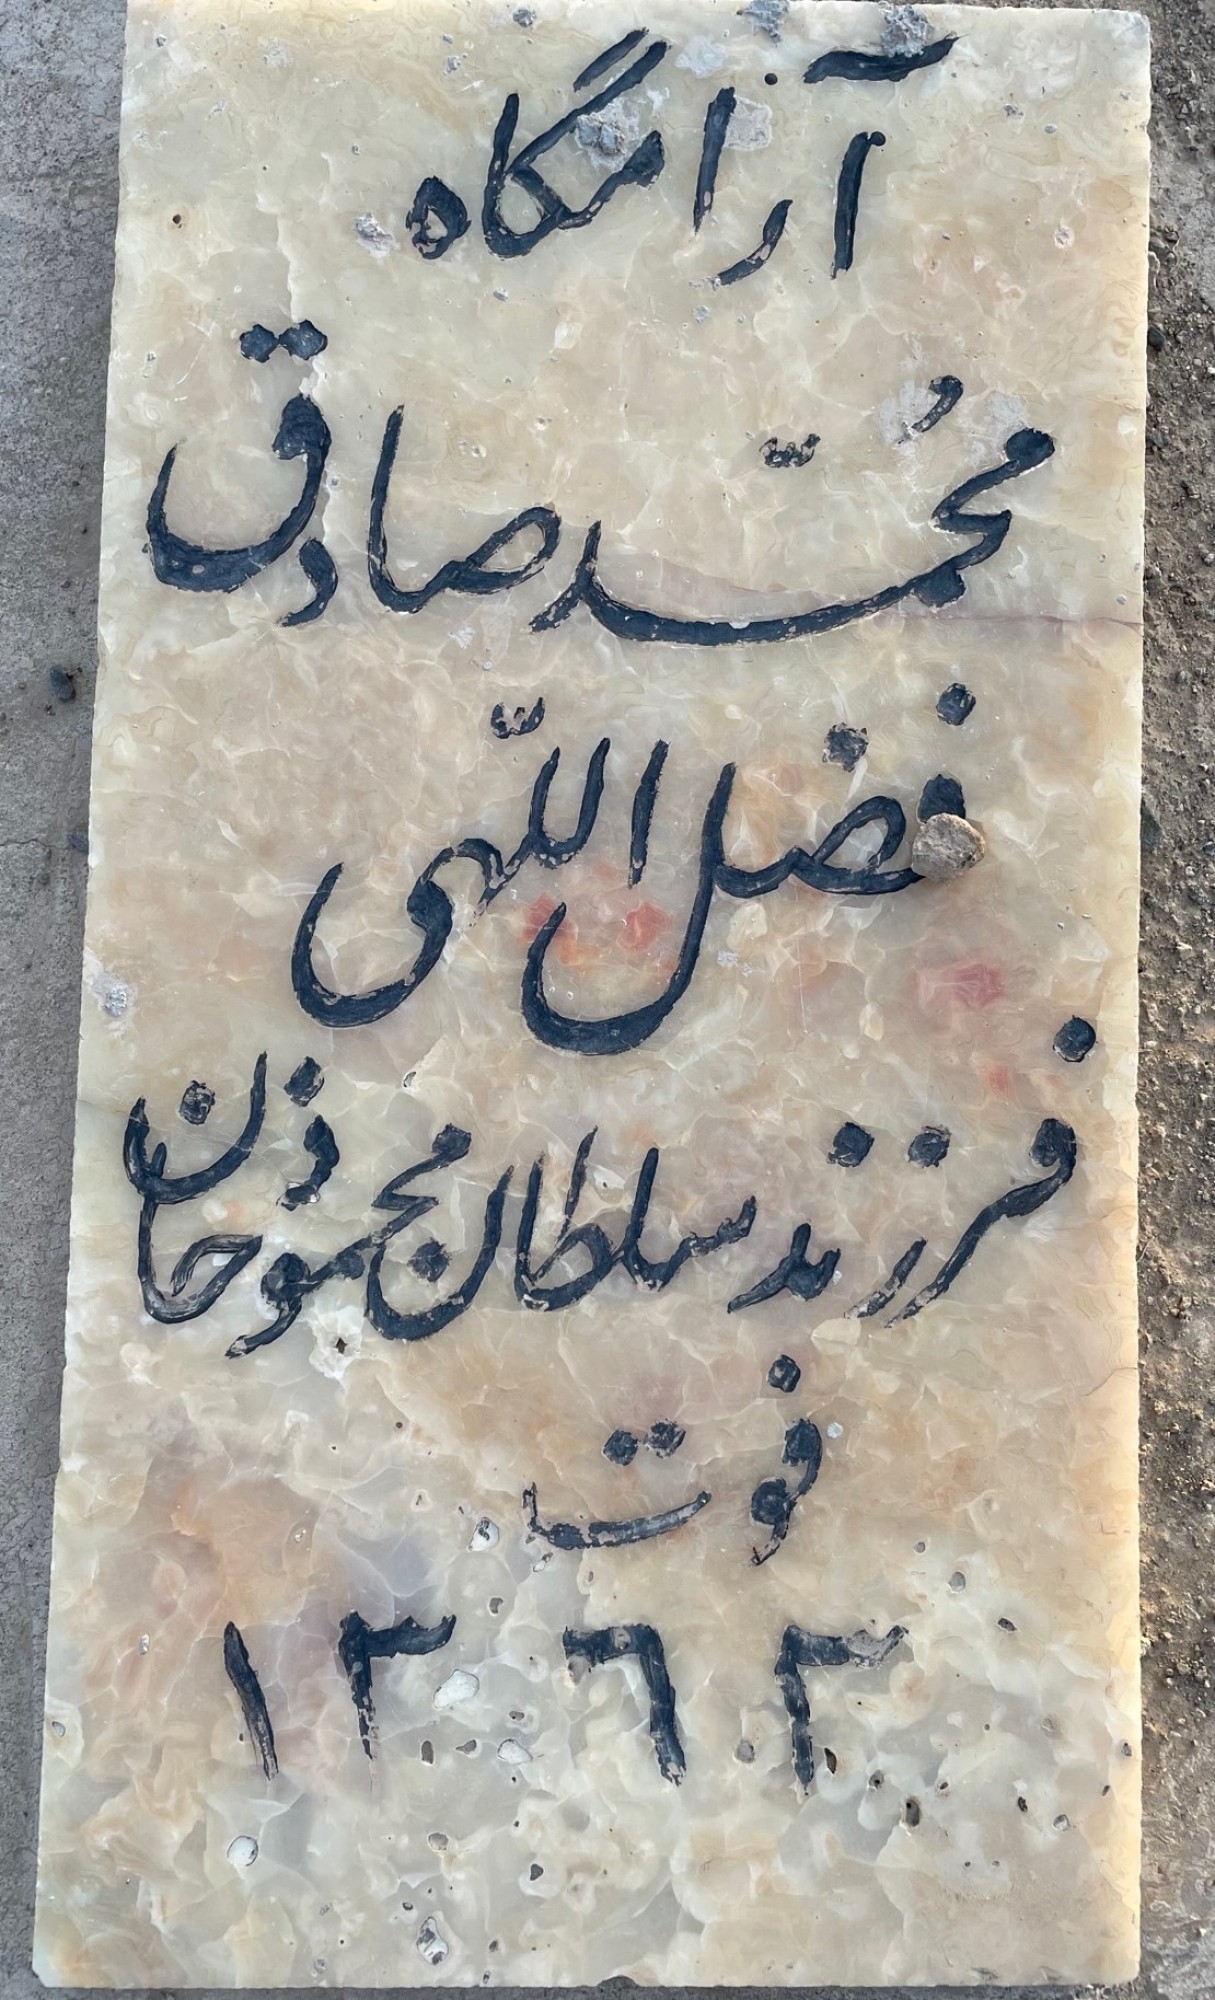 آرامگاه
مُحمّد صادق
فضل اللّهی
فرزند سلطان محمود خان
فوت
۱۳۶۳